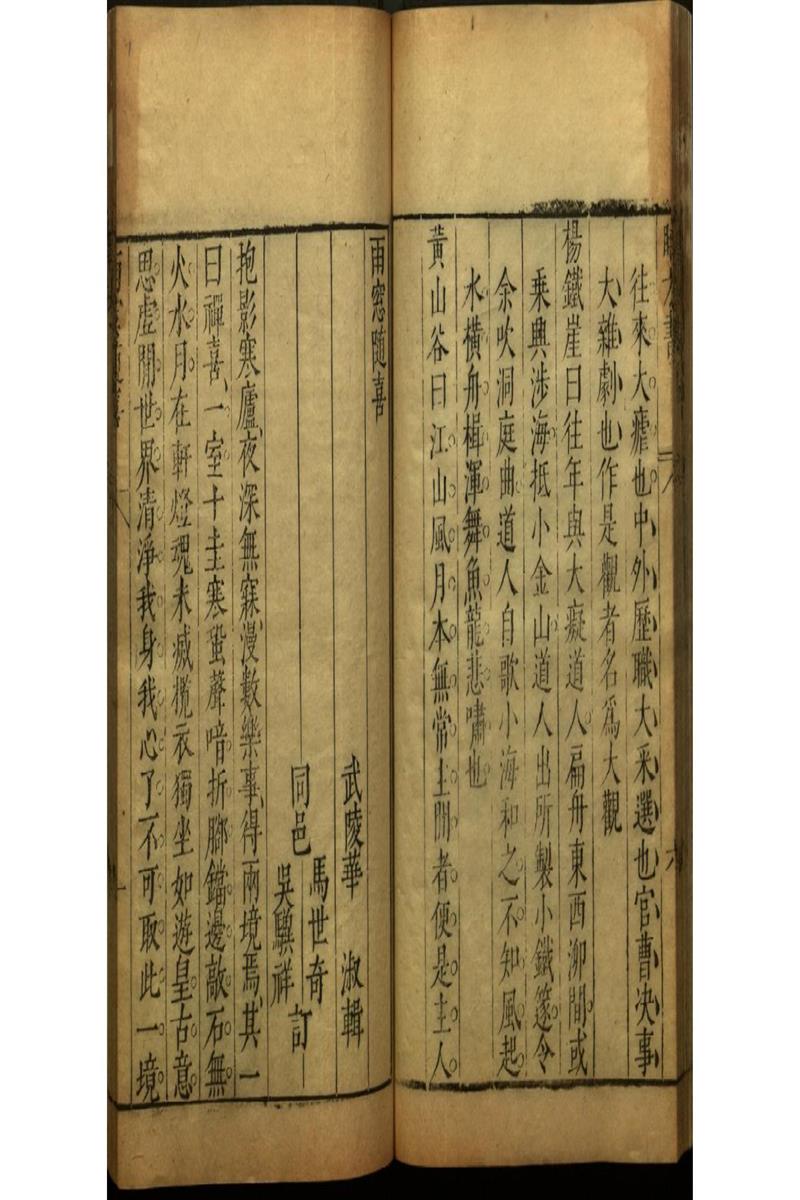 往來大瘧也中外歷職大采選也官曹决事
大雜劇也作是觀者名爲大觀
楊鐵崖曰往年與大癡道人扁舟東西泖間或
乘興涉海抵小金山道人出所製小鐵篴令
余吹洞庭曲道人自歌小海和之不知風起
水橫舟楫渾舞魚龍悲嘯也
黃山谷曰江山風月本無常主閒者便是主人
雨窓随喜
武陵華淑輯
馬世奇
同邑訂
吳驥祥
抱影寒廬夜深無寐漫數樂事得兩境焉其一
曰禪喜一室十圭寒蛩聲喑折脚鐺邊敲石無
火水月在軒燈魂未滅攬衣獨坐如遊皇古意
思虛閒世界清淨我身我心了不可取此一境